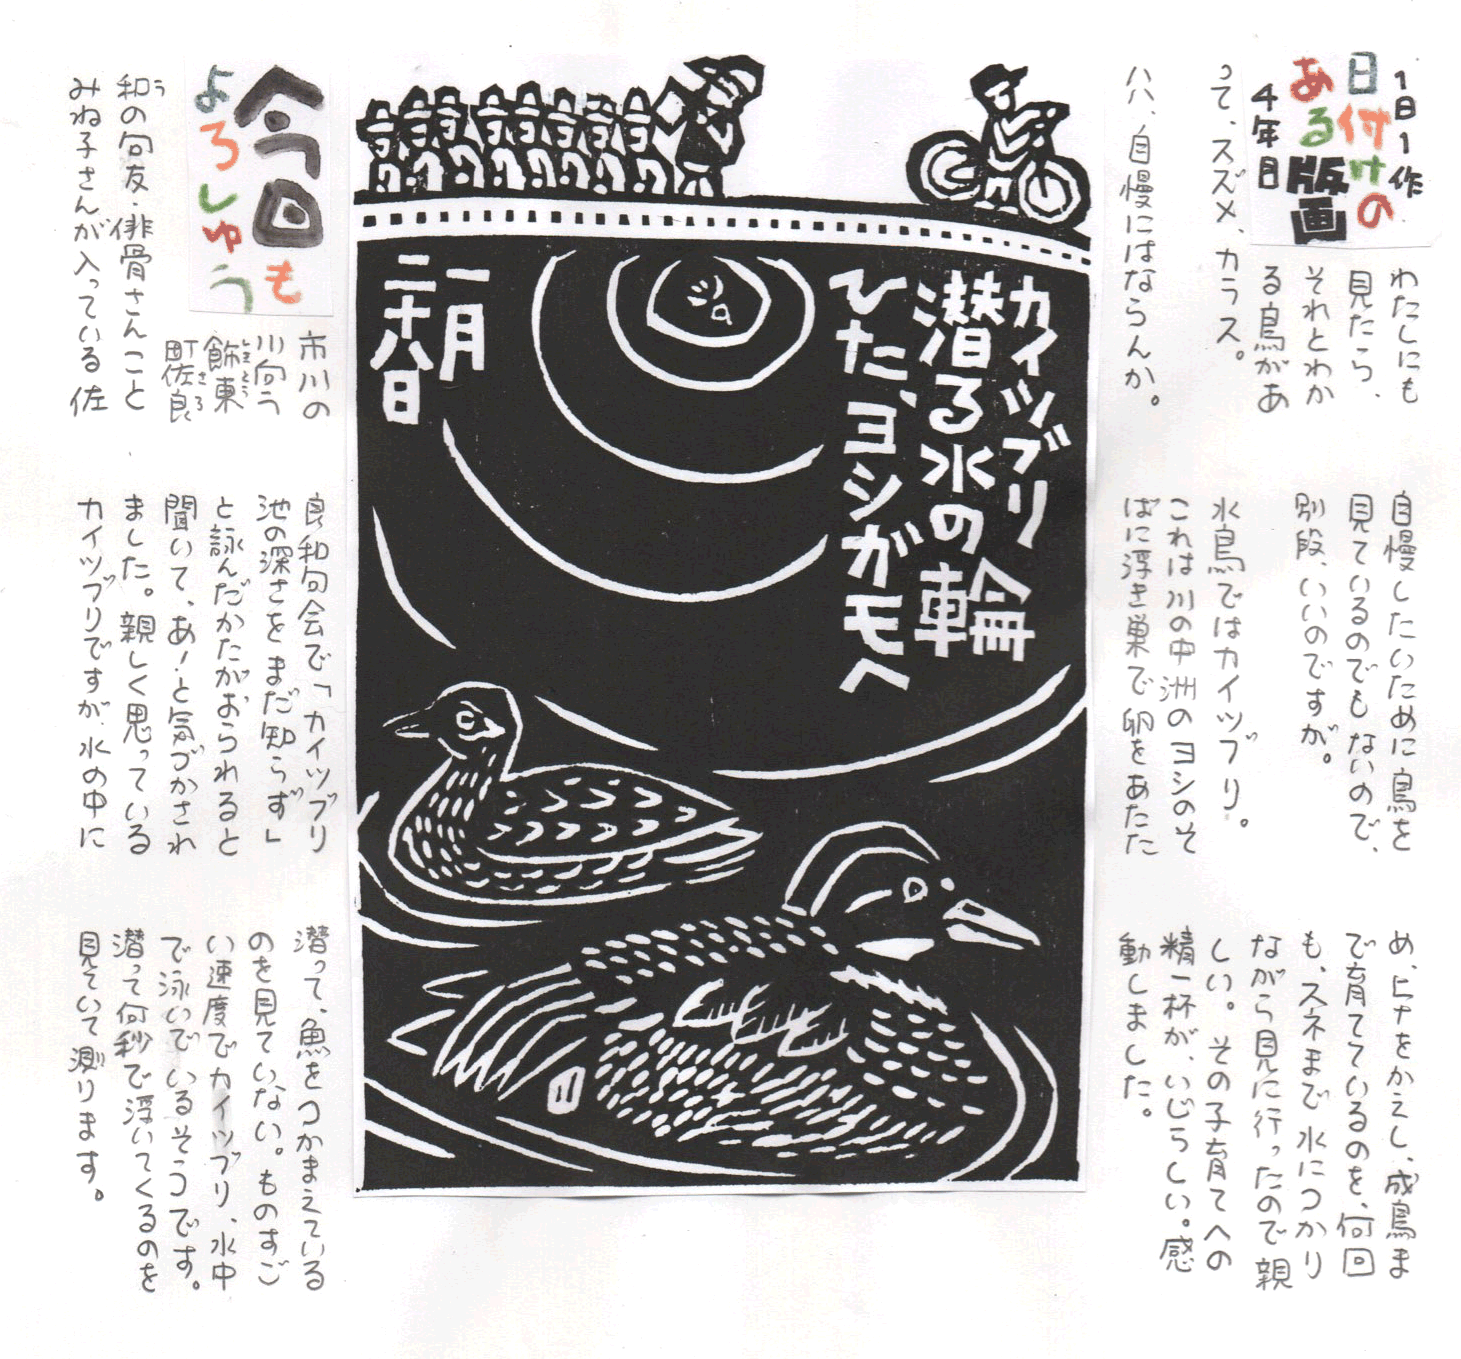 1日1作
日付けの
ある版画
4年目
わたしにも
見たら、
それとわか
る鳥があ
って、スズメ、カラス。
ハハ、自慢にはならんか。
自慢したいために鳥を
見ているのでもないので、
別段、いいのですが。
水鳥ではカイツブリ。
これは川の中洲のヨシのそ
ばに浮き巣で卵をあたた
め、ヒナをかえし、成鳥ま
で育てているのを、何回
も、スネまで水につかり
ながら見に行ったので親
しい。その子育てへの
精一杯が、いじらしい。感
動しました。
カイツブリ
潜る水の輪
ひた、ヨシガモへ
一月
二十八日
今回も
よろしゅう
市川の
川向う
飾東
しきとう
町佐良
さろ
和の句友・俳骨さんこと
う
みね子さんが入っている佐
良和句会で「カイツブリ
池の深さをまだ知らず」
と詠んだかたがおられると
聞いて、あ！と気づかされ
ました。親しく思っている
カイツブリですが、水の中に
潜って、魚をつかまえている
のを見ていない。ものすご
い速度でカイツブリ、水中
で泳いでいるそうです。
潜って何秒で浮いてくるのを
見ていて測ります。